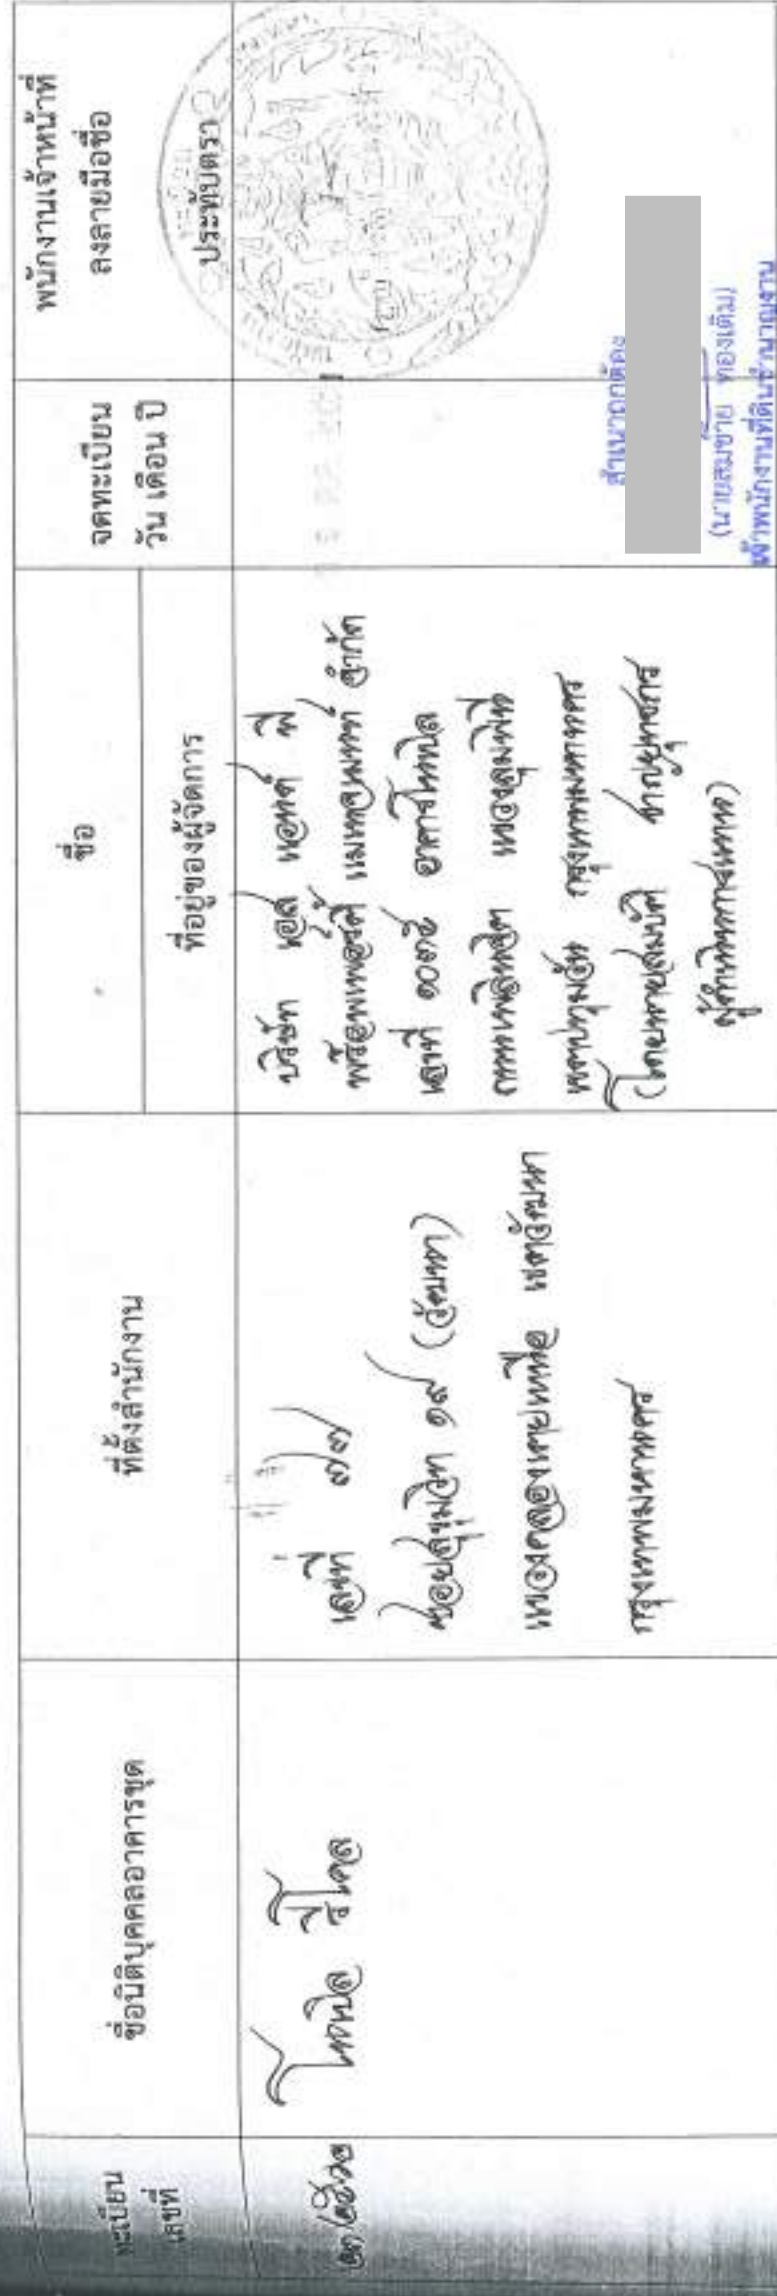 ทะเบียน
เลขที่
ชื่อนิติบุคคลอาคารชุด
ที่ตั้งสำนักงาน
ชื่อ
ที่อยู่ของผู้จัดการ
จดทะเบียน
วัน เดือน ปี
พนักงานเจ้าหน้าที่
ลงลายมือชื่อ
ประทับตรา
โนเบิล รีโคล
เลขที่ ๗๗
ซอยสุขุมวิท ๑๙ (วัฒนา)
แขวงคลองเตยเหนือ เขตวัฒนา
กรุงเทพมหานคร
บริษัท แอล แอนด์ พี
พร็อพเพอร์ตี้ แมเนจเมนท์ จำกัด
เลขที่ ๑๐๓๕ อาคารโนเบิล
ถนนเพลินจิต แขวงลุมพินี
เขตปทุมวัน กรุงเทพมหานคร
(โดยนายสมบัติ
ผู้ดำเนินการแทน)
สำเนาถูกต้อง
(นายสมชาย ทองเติม)
เจ้าพนักงานที่ดินชำนาญงาน